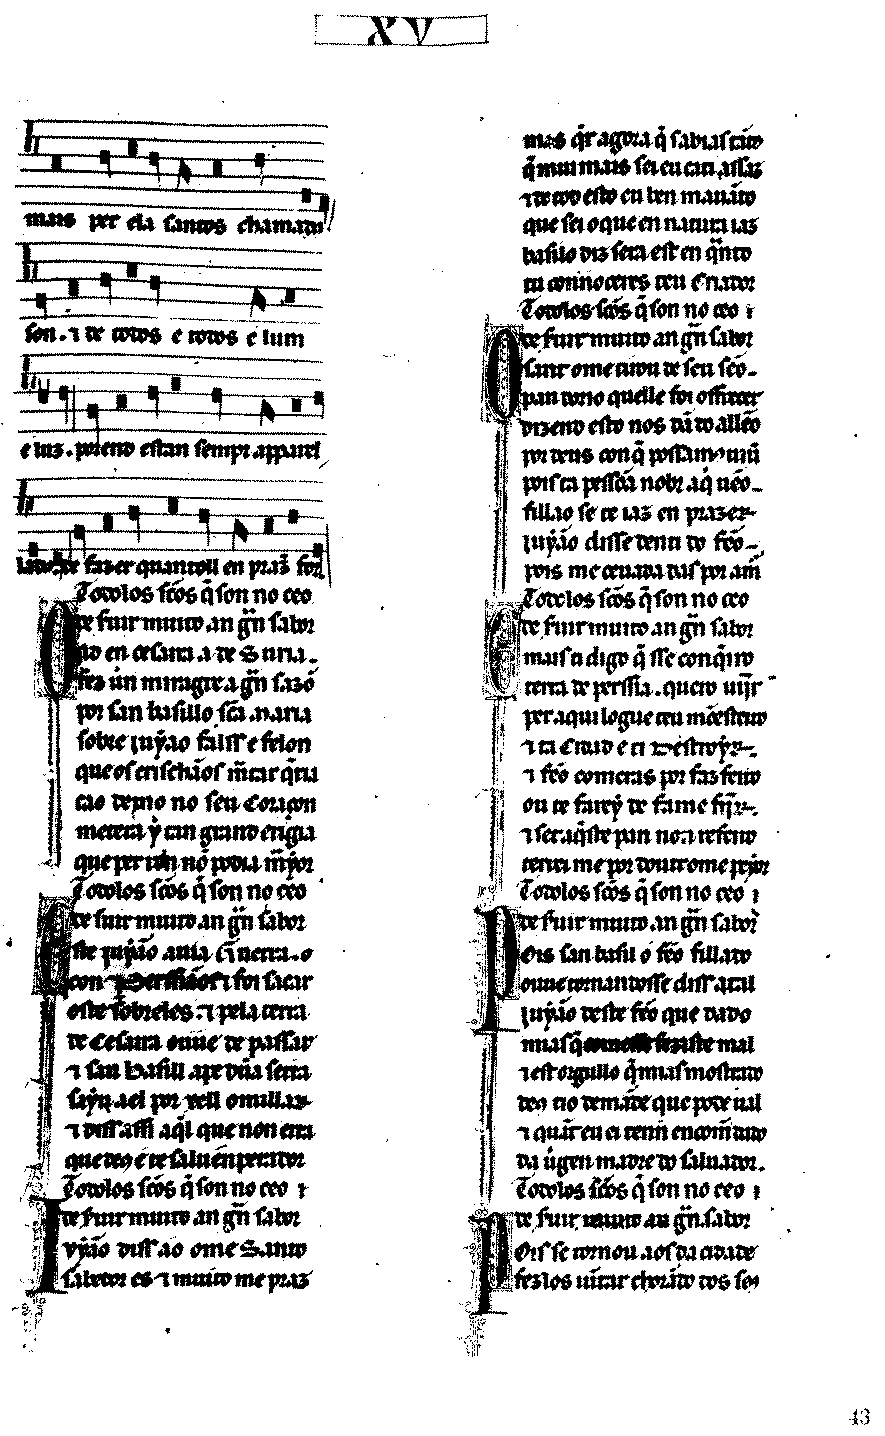 XV
mais per ela santos chamados
son. ⁊ de todos e todos e lum
e luz. porend estan sempr apparel
lados de fazer quantoll en praz̄ for.
Todolos sc̄os q̄ son no ceo
de seruir muito an gr̄n sabor
ND en cesaira a de Suria.
fez ún miragre a gr̄n sazō
por san basillo sc̄a maria
sobre juỹao falss e felon
que os crischãos m̄tar q̄ria
ca o demo no seu Coraçon
metera ẏ tan grand erigia
que per ren nō podia m̄yor
Todolos sc̄os q̄ son no ceo
de seruir muito an gr̄n sabor
Este juỹao auia Guerra. o
con Perssiãos ⁊ foi sacar
oste sobreles. ⁊ pela terra
de Cesaira ouue de passar
⁊ san Basill a pe dũa serra
sayu ael por xell omillar
⁊ diss assi aq̄l que non erra
que deo é te salu enperador
Todolos sc̄os q̄ son no ceo ⁊
de seruir muito an gr̄n sabor
Vyão diss ao ome Santo
sabedor es ⁊ muito me praz
mas q̄r agora q̄ sabias tāto
q̄ mui mais sei eu ca ti, assaz
⁊ de tod esto eu ben mauāto
que sei o que en natura iaz
basilo diz sera est en q̄nto
tu connoceres teu Criador
Todolos sc̄os q̄ son no ceo ⁊
de seruir muito an gr̄n sabor
O sant ome tirou de seu sēo
pan dorio quelle foi offreçer
dizend esto nos dā do allēo
por deus con q̄ possamos uiū
pois ta pessōa nobr aq̄ uēo
fillao se te iaz en prazer
juỹao disse denti do fēo
pois me ceuada das por am̄
Todolos sc̄os q̄ son no ceo
de seruir muito an gr̄n sabor
E mais ti digo q̄ sse conq̄iro
terra de perssia. quero uijr
per aqui logue teu mōesteiro
⁊ ta Cidad e ti Destroÿr.
⁊ fēo comerás por fazfeiro
ou te farey de fame fijr.
⁊ se aq̄ste pan no n a refeiro
terrei me por doutr ome peyor
Todolos sc̄os q̄ son no ceo ⁊
de seruir muito an gr̄n sabor
Pois san basil o fēo fillado
ouue tornandosse diss atal
juỹao deste fēo que dado
mias q̄ comesse feziste mal
⁊ est orgullo q̄ mias mostrado
deo tio demāde que pode ual
⁊ quārreu ei tenn encom̄dado
da ūgen madre do saluador.
Todolos sc̄os q̄ son no ceo ⁊
de seruir muito an gr̄n sabor
Pois se tornou aos da cidade
fezlos uīiar chorādo dos seos
43